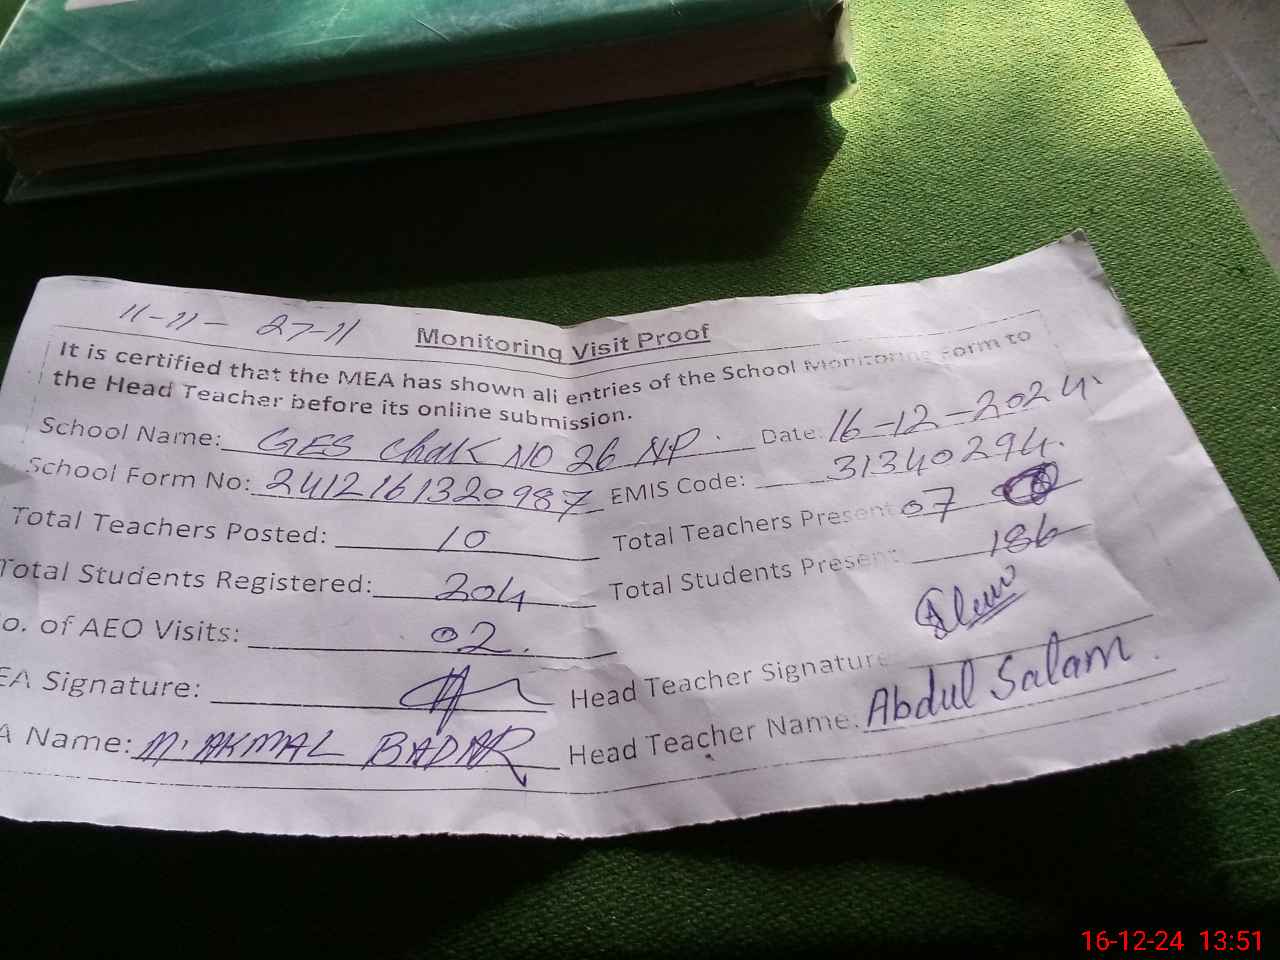 11-11- 27-11
Monitoring Visit Proof
It is certified that the MEA has shown all entries of the School Monitoring Form to
the Head Teacher before its online submission.
School Name: GES Chak NO 26 NP. Date: 16-12-2024
School Form No: 2412161320987 EMIS Code: 31340294.
Total Teachers Posted: 10 Total Teachers Present 07
Total Students Registered: 204 Total Students Present: 186
o. of AEO Visits: 02.
EA Signature: Head Teacher Signature
A Name: M. AKMAL BADAR Head Teacher Name: Abdul Salam.
16-12-24 13:51